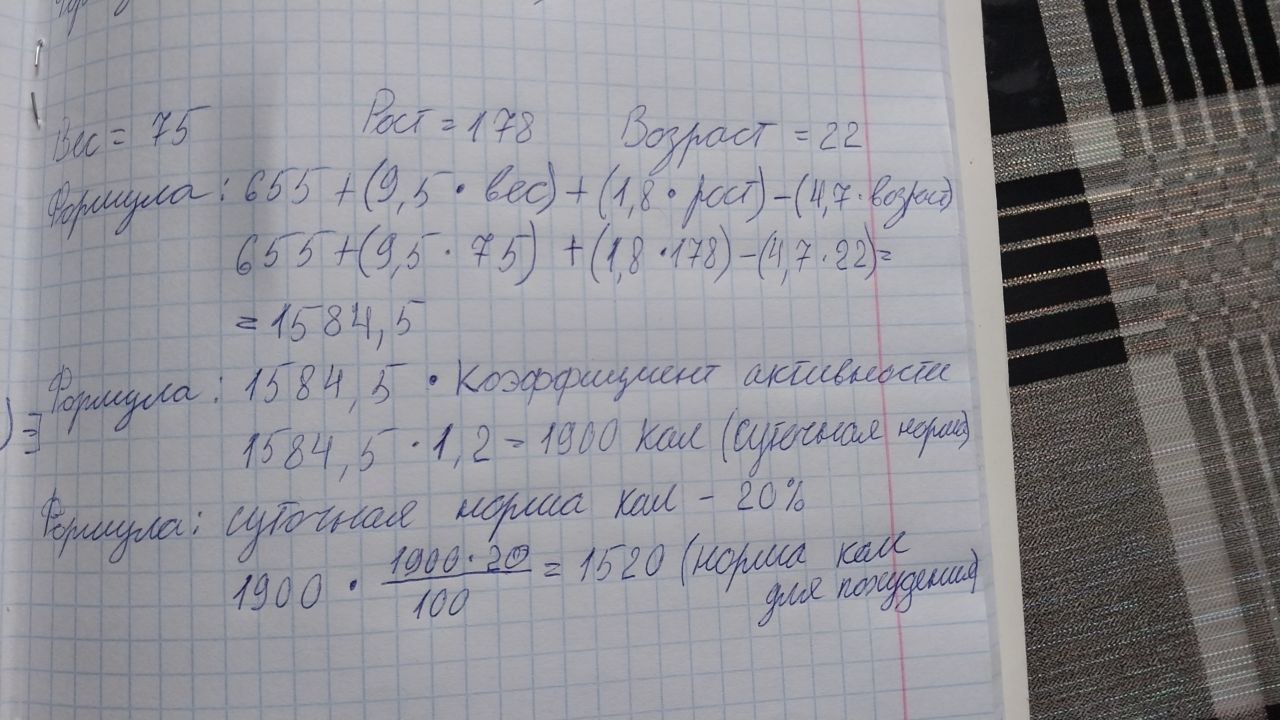 Вес = 75 Рост = 178 Возраст = 22
Формула: 655 + (9,5 · вес) + (1,8 · рост) - (4,7 · возраст)
655 + (9,5 · 75) + (1,8 · 178) - (4,7 · 22) =
= 1584,5
Формула: 1584,5 · Коэффициент активности
1584,5 · 1,2 = 1900 кал (суточная норма)
Формула: суточная норма кал - 20%
1900 · 1900 · 20 / 100 = 1520 (норма кал
для похудения)